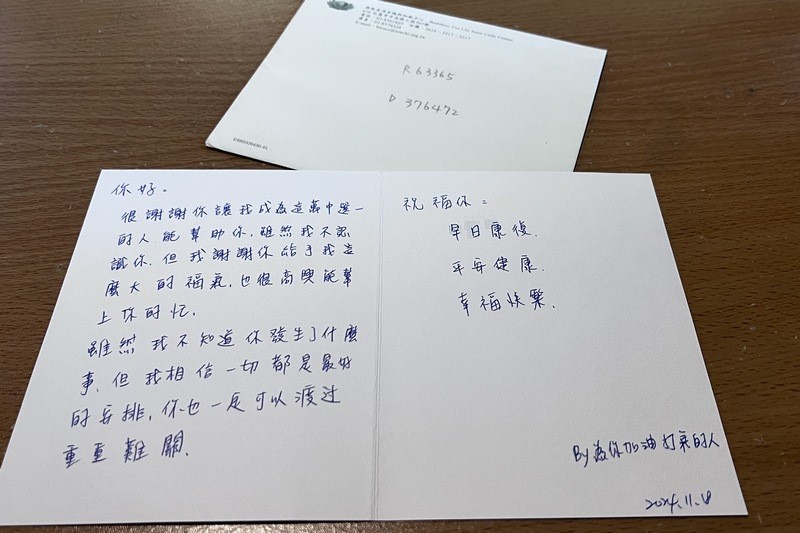 R 63365
D 376472
你好。
很謝謝你讓我成為這萬中選一
的人能幫助你，雖然我不認
識你，但我謝謝你給予我這
麼大的福氣，也很高興能幫
上你的忙。
雖然我不知道你發生了什麼
事，但我相信一切都是最好
的安排，你也一定可以渡过
重重難關。
祝福你：
早日康復。
平安健康。
幸福快樂。
By 為你加油打氣的人